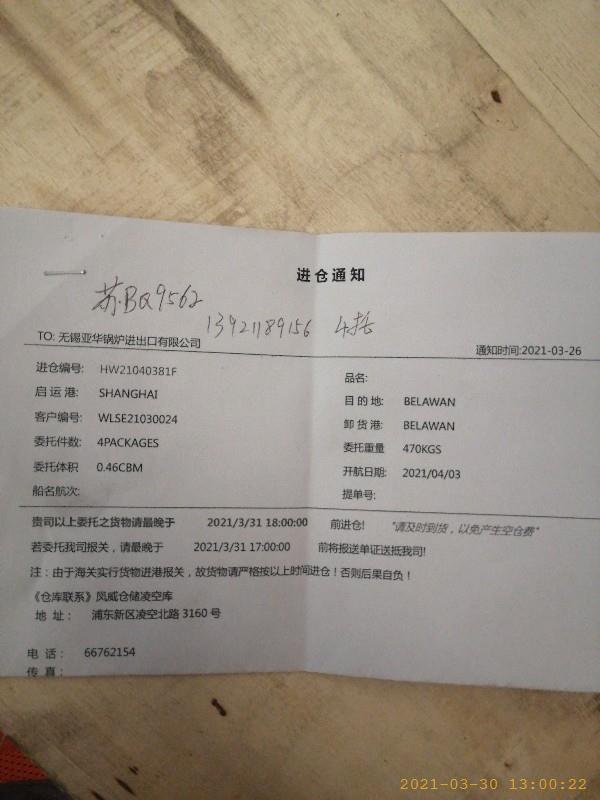 进仓通知
苏BQ9562
13921189156 4托
TO: 无锡亚华锅炉进出口有限公司
通知时间:2021-03-26
进仓编号: HW21040381F 品名:
启运港: SHANGHAI 目的地: BELAWAN
客户编号: WLSE21030024 卸货港: BELAWAN
委托件数: 4PACKAGES 委托重量 470KGS
委托体积 0.46CBM 开航日期: 2021/04/03
船名航次: 提单号:
贵司以上委托之货物请最晚于 2021/3/31 18:00:00 前进仓! "请及时到货，以免产生空仓费"
若委托我司报关，请最晚于 2021/3/31 17:00:00 前将报送单证送抵我司!
注：由于海关实行货物进港报关，故货物请严格按以上时间进仓！否则后果自负！
《仓库联系》凤威仓储凌空库
地 址： 浦东新区凌空北路 3160 号
电 话： 66762154
传 真：
2021-03-30 13:00:22